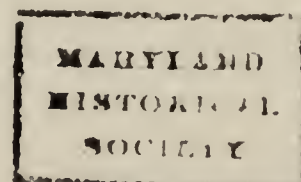 MARYLAND
HISTORICAL
SOCIETY